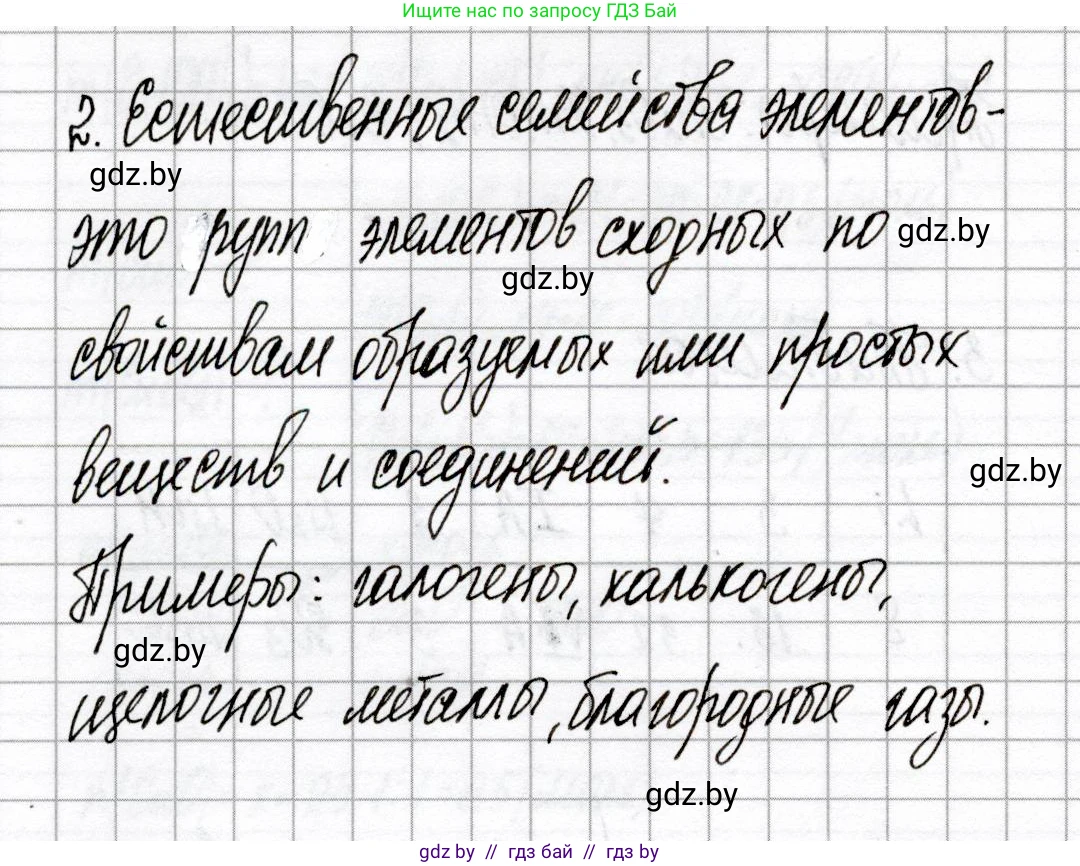 Ищите нас по запросу ГДЗ Бай
2. Естественные семейства элементов-
gdz.by
это групп элементов сходных по gdz.by
gdz.by
свойствам образуемых ими простых
веществ и соединений.
gdz.by
Примеры: галогены, халькогены,
gdz.by
щелочные металлы, благородные газы.
gdz.by
gdz.by // гдз бай // гдз.by